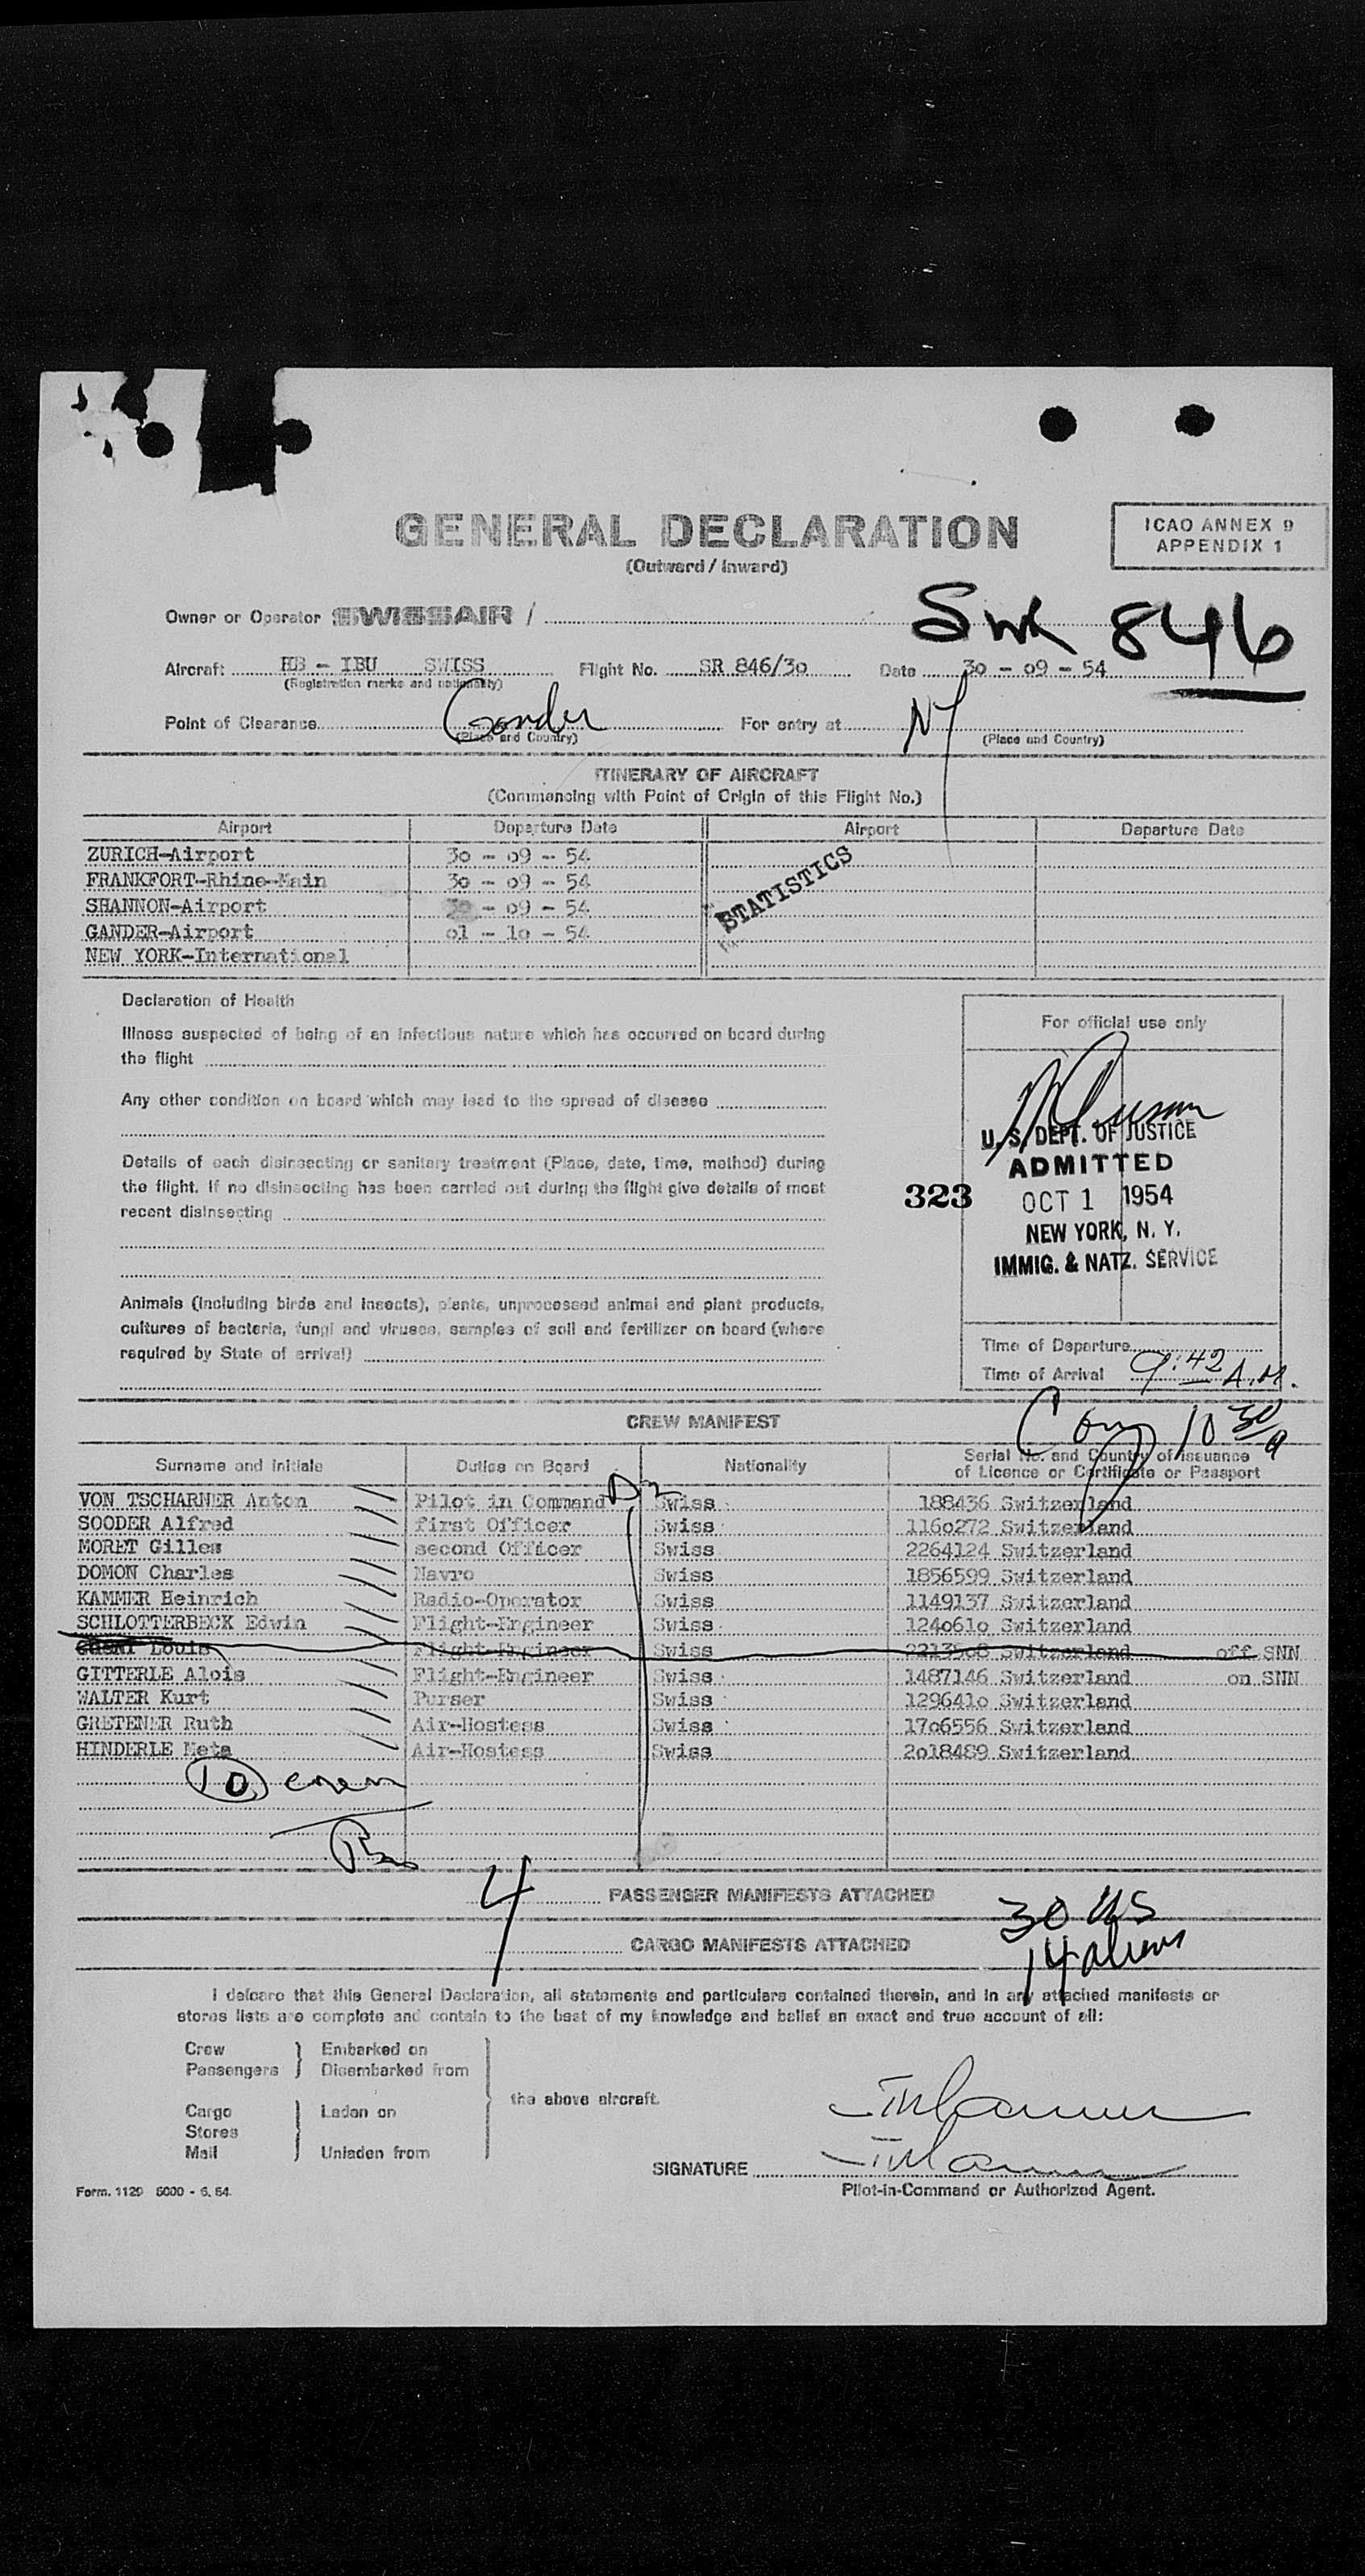 GENERAL DECLARATION
(Outward / Inward)
ICAO ANNEX 9
APPENDIX 1
Owner or Operator SWISSAIR /
SWR 846
Aircraft HB - IBU SWISS Flight No. SR 846/3o Date 3o - o9 - 54
(Registration marks and nationality)
Point of Clearance Gander For entry at NY
(Place and Country) (Place and Country)
ITINERARY OF AIRCRAFT
(Commencing with Point of Origin of this Flight No.)
Airport Departure Date Airport Departure Date
ZURICH-Airport 3o - o9 - 54
FRANKFORT-Rhine-Main 3o - o9 - 54
SHANNON-Airport 3o - o9 - 54
GANDER-Airport o1 - 1o - 54
NEW YORK-International
STATISTICS
Declaration of Health
Illness suspected of being of an infectious nature which has occurred on board during
the flight
Any other condition on board which may lead to the spread of disease
Details of each disinsecting or sanitary treatment (Place, date, time, method) during
the flight. If no disinsecting has been carried out during the flight give details of most
recent disinsecting
Animals (including birds and insects), plants, unprocessed animal and plant products,
cultures of bacteria, fungi and viruses, samples of soil and fertilizer on board (where
required by State of arrival)
For official use only
U. S. DEPT. OF JUSTICE
ADMITTED
323
OCT 1 1954
NEW YORK, N. Y.
IMMIG. & NATZ. SERVICE
Time of Departure
Time of Arrival 9:42 A.M.
10 30
CREW MANIFEST
Surname and initials Duties on Board Nationality Serial No. and Country of issuance
of Licence or Certificate or Passport
VON TSCHARNER Anton Pilot in Command Swiss 188436 Switzerland
SOODER Alfred first Officer Swiss 116o272 Switzerland
MORET Gilles second Officer Swiss 2264124 Switzerland
DOMON Charles Navro Swiss 1856599 Switzerland
KAMMER Heinrich Radio-Operator Swiss 1149137 Switzerland
SCHLOTTERBECK Edwin Flight-Engineer Swiss 124o61o Switzerland
Louis Flight-Engineer Swiss Switzerland off SNN
GITTERLE Alois Flight-Engineer Swiss 1487146 Switzerland on SNN
WALTER Kurt Purser Swiss 129641o Switzerland
GRETENER Ruth Air-Hostess Swiss 17o6556 Switzerland
HINDERLE Meta Air-Hostess Swiss 2o18489 Switzerland
10 crew
4 PASSENGER MANIFESTS ATTACHED
30 US
CARGO MANIFESTS ATTACHED
14 aliens
I delcare that this General Declaration, all statements and particulars contained therein, and in any attached manifests or
stores lists are complete and contain to the best of my knowledge and belief an exact and true account of all:
Crew Embarked on
Passengers Disembarked from
the above aircraft.
Cargo Laden on
Stores
Mail Unladen from
SIGNATURE
Pilot-in-Command or Authorized Agent.
Form. 1129 6000 - 6. 54